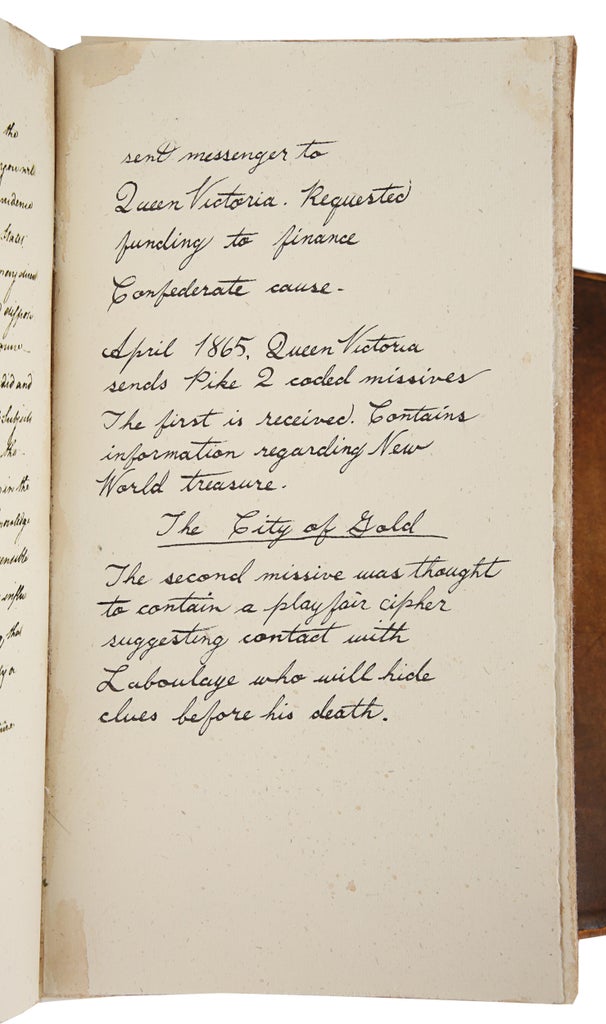 the
States
did and
the
in the
that
sent messenger to
Queen Victoria. Requested
funding to finance
Confederate cause.
April 1865, Queen Victoria
sends Pike 2 coded missives
The first is received. Contains
information regarding New
World treasure.
The City of Gold
The second missive was thought
to contain a playfair cipher
suggesting contact with
Laboulaye who will hide
clues before his death.